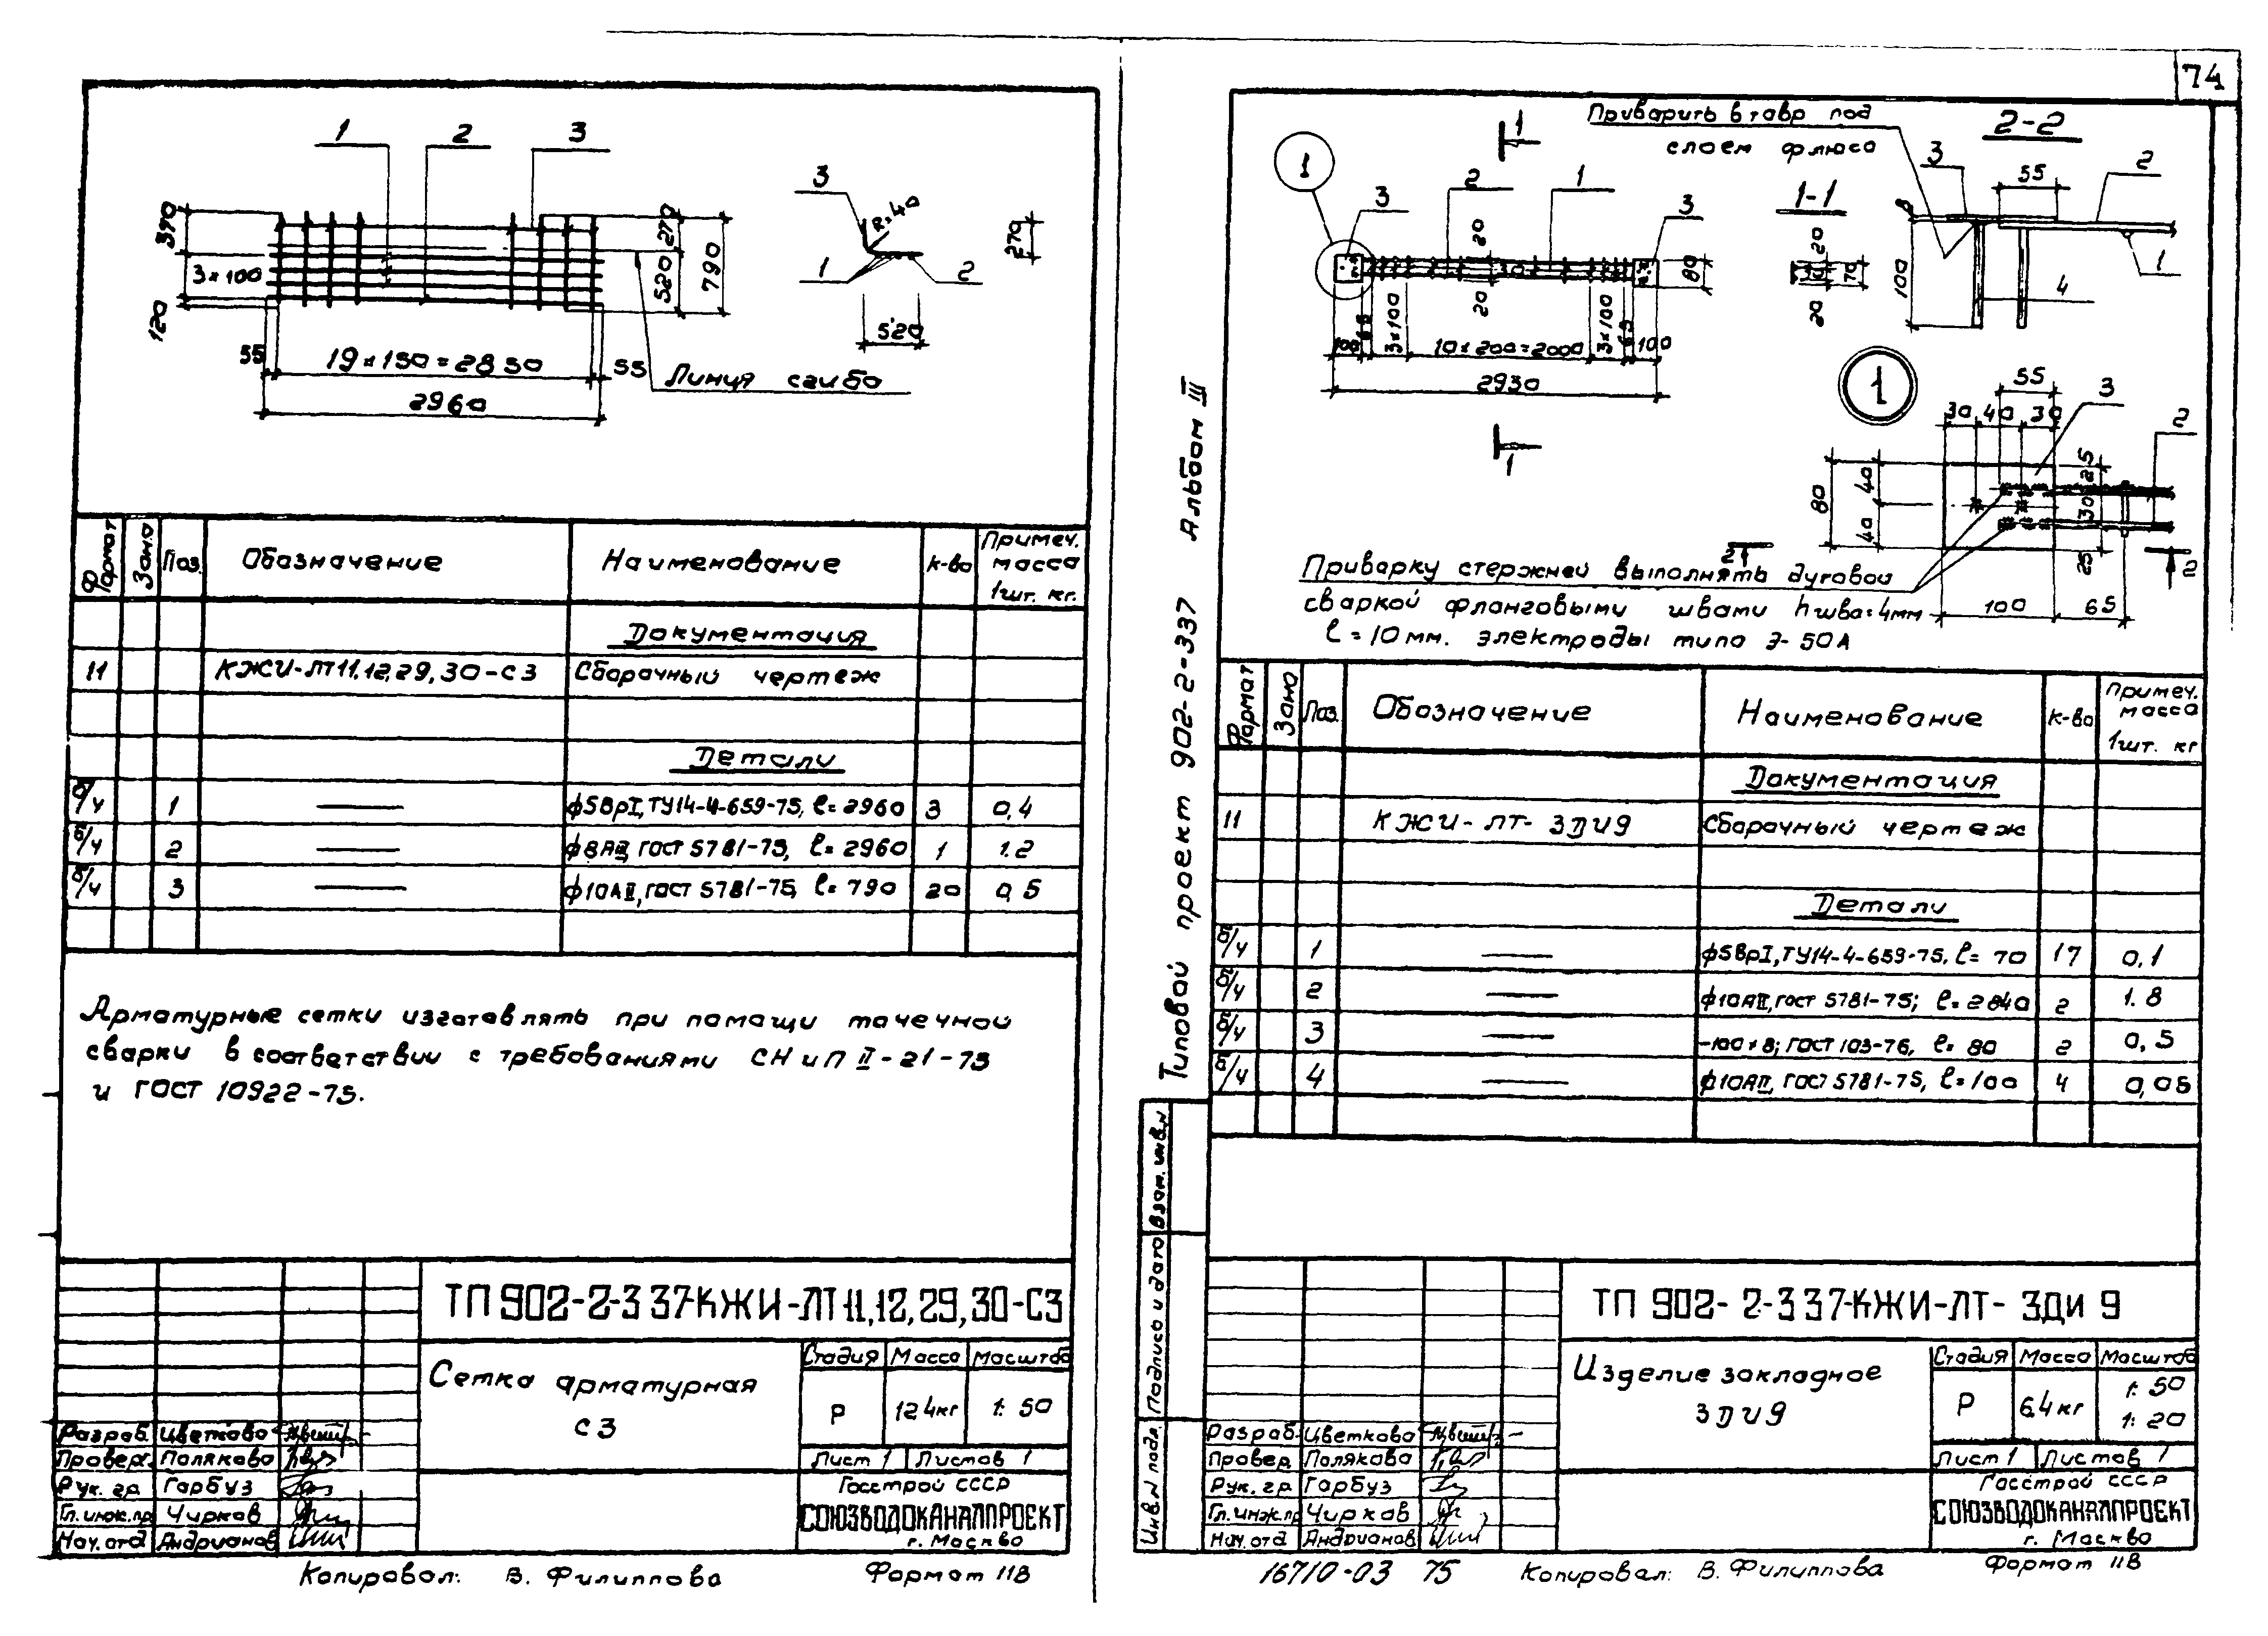 74
1 2 3
370
3×100
120
270
520
790
55
19×150=2850
55
2960
Линия сгиба
3
R=40
1
2
270
520
Формат
Зона
Поз.
Обозначение
Наименование
к-во
Примеч. масса 1шт. кг.
Документация
11 КЖИ-ЛТ11,12,29,30-С3 Сборочный чертеж
Детали
б/ч 1 — ϕ5ВрI, ТУ14-4-659-75, ℓ=2960 3 0,4
б/ч 2 — ϕ8АIII, ГОСТ 5781-75, ℓ=2960 1 1.2
б/ч 3 — ϕ10АII, ГОСТ 5781-75, ℓ=790 20 0,5
Арматурные сетки изготавлять при помощи точечной
сварки в соответствии с требованиями СНиП II-21-75
и ГОСТ 10922-75.
ТП 902-2-337КЖИ-ЛТ11,12,29,30-С3
Сетка арматурная
С3
Стадия Масса Масштаб
Р 12.4кг 1:50
Лист 1 Листов 1
Госстрой СССР
СОЮЗВОДОКАНАЛПРОЕКТ
г. Москва
Разраб. Цветкова
Провер. Полякова
Рук. гр. Горбуз
Гл.инж.пр Чирков
Нач.отд Андрианов
Копировал: В. Филиппова
Формат 11В
Приварить втавр под
слоем флюса
2-2
1
1
3
2
1
3
1-1
20
30
20
80
20
30
20
70
100
65
3×100
10×200=2000
3×100
65
100
2930
1
3
55
2
8
100
4
1
1
55
3
30 40 30
2
80
40
40
25
30
25
100
65
2
2
Приварку стержней выполнять дуговой
сваркой фланговыми швами hшва=4мм
ℓ=10мм. Электроды типа Э-50А
Типовой проект 902-2-337 Альбом III
Формат
Зона
Поз.
Обозначение
Наименование
к-во
Примеч. масса 1шт. кг
Документация
11 КЖИ-ЛТ-ЗДИ9 Сборочный чертеж
Детали
б/ч 1 — ϕ5ВрI, ТУ14-4-659-75, ℓ=70 17 0,1
б/ч 2 — ϕ10АII, ГОСТ 5781-75; ℓ=2840 2 1.8
б/ч 3 — -100×8; ГОСТ 103-76, ℓ=80 2 0,5
б/ч 4 — ϕ10АII, ГОСТ 5781-75, ℓ=100 4 0,06
Взам. инв.N
Подпись и дата
Инв.N подл.
ТП 902-2-337-КЖИ-ЛТ-ЗДИ 9
Изделие закладное
ЗДИ9
Стадия Масса Масштаб
Р 6.4кг 1:50
1:20
Лист 1 Листов 1
Госстрой СССР
СОЮЗВОДОКАНАЛПРОЕКТ
г. Москва
Разраб. Цветкова
Провер. Полякова
Рук. гр. Горбуз
Гл.инж.пр Чирков
Нач.отд Андрианов
16710-03 75
Копировал: В. Филиппова
Формат 11В